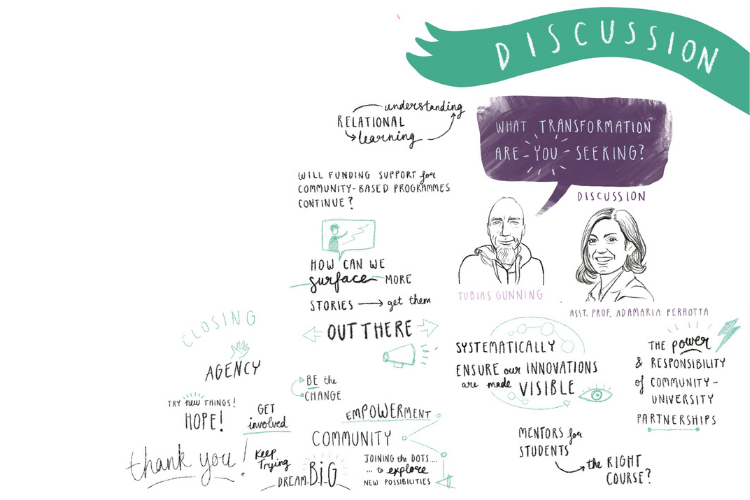 DISCUSSION
understanding
RELATIONAL
learning
WHAT TRANSFORMATION
ARE - YOU - SEEKING?
WILL FUNDING SUPPORT for
COMMUNITY-BASED PROGRAMMES
CONTINUE?
DISCUSSION
HOW CAN WE
surface MORE
STORIES → get them
OUT THERE
TOBIAS GUNNING
ASST. PROF. ADAMARIA PERROTTA
CLOSING
AGENCY
TRY new THINGS!
HOPE!
GET
involved
thank you!
Keep
Trying
DREAM BIG
BE the
CHANGE
EMPOWERMENT
COMMUNITY
JOINING the DOTS...
... to explore
NEW POSSIBILITIES
SYSTEMATICALLY
ENSURE our INNOVATIONS
are made VISIBLE
MENTORS for
STUDENTS
the RIGHT
COURSE?
THE power
& RESPONSIBILITY
of COMMUNITY-
UNIVERSITY
PARTNERSHIPS